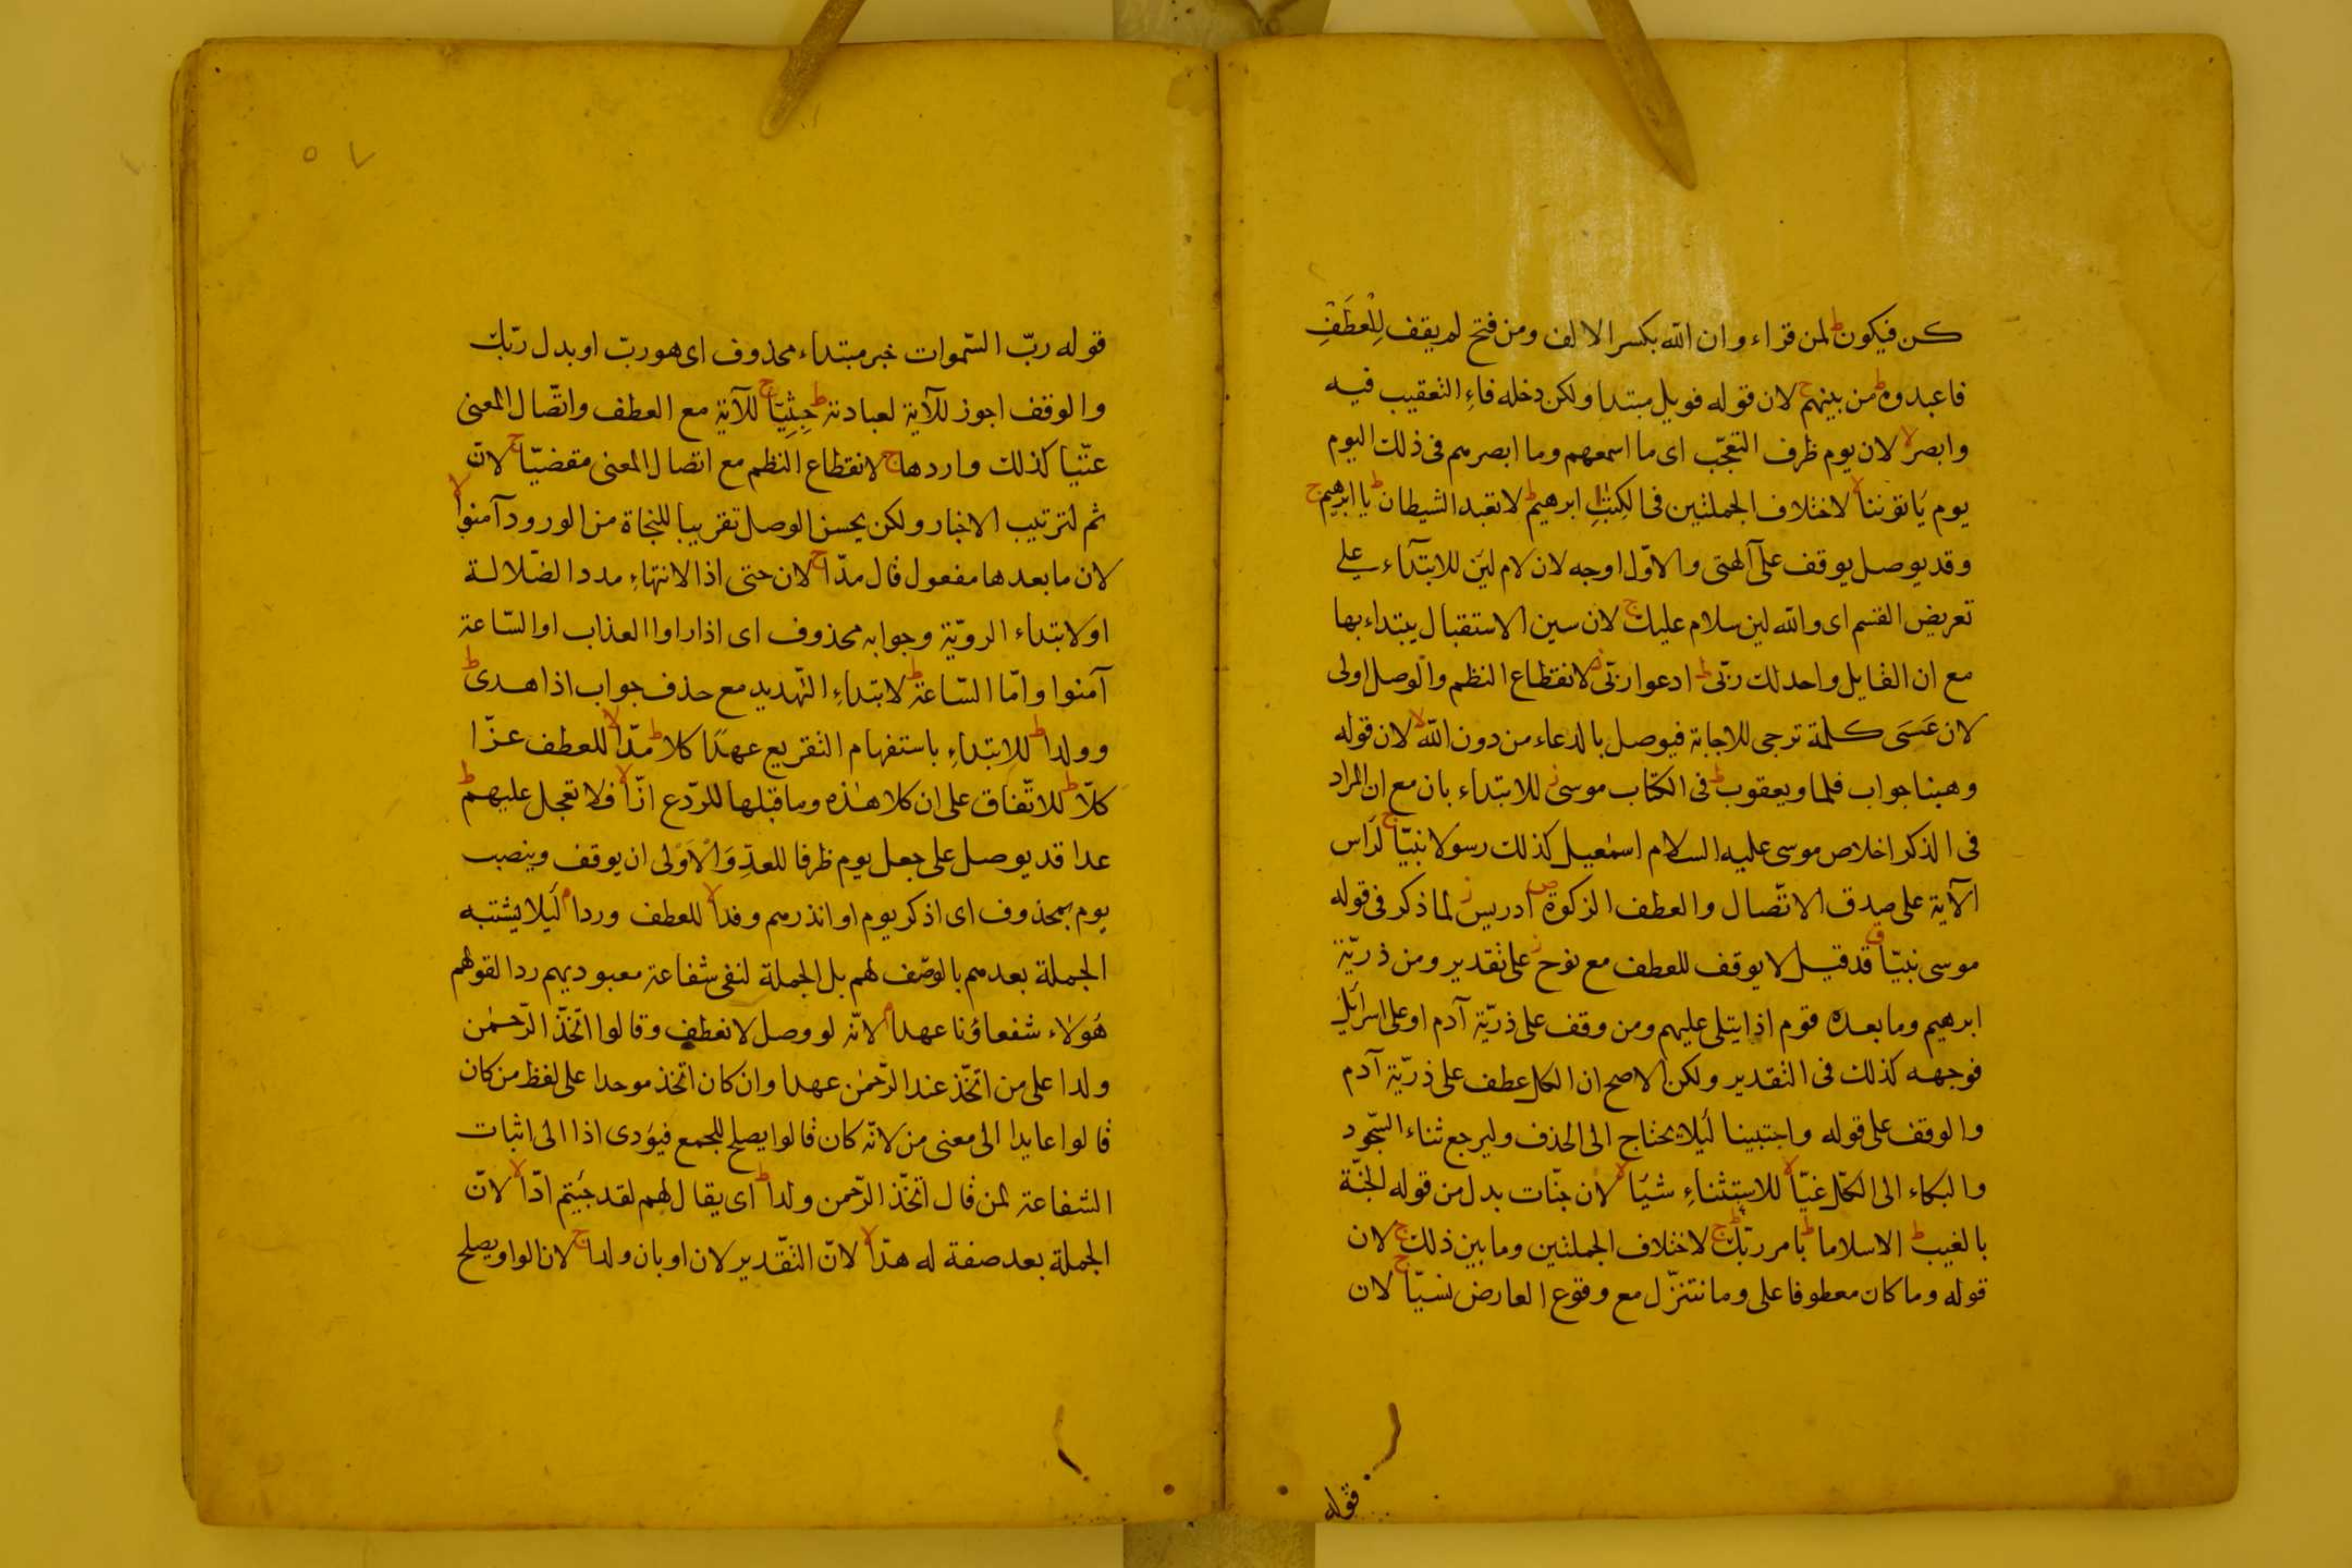 كن فيكون ط لمن قراء وان الله بكسر الالف ومن فتح لم يقف لِلْعَطْفِ
فاعبدوه ط من بينهم ج لان قوله فويل مبتدا ولكن دخله فاءِ التعقيب فيه
وابصر لا لان يوم ظرف التعجّب اى ما اسمعهم وما ابصرهم فى ذلك اليوم
يوم يَاتوننا لا لاختلاف الجملتين فى الكِتٰبِ ابرهيم ط لا تعبد الشيطان ط يا ابرهيم ج
وقد يوصل يوقف على آلهتى والاوّل اوجه لان لام لين للابتدآء على
تعريض القسم اى والله لين سلام عليك ج لان سين الاستقبال يبتداء بها
مع ان القايل واحد لك ربّى ط ادعوا ربّى ز لانقطاع النظم والوصل اولى
لان عَسَى كلمة ترجى للاجابة فيوصل بالدعاء من دون الله لا لان قوله
وهبنا جواب فلما ويعقوب ط فى الكتاب موسى ز للابتداء بان مع ان المراد
فى الذكر اخلاص موسى عليه السلام اسمٰعيل كذلك رسولا نبيّا ج لرَاس
الآية على صدق الاتّصال والعطف الزكوة ص ادريس ز لما ذكر فى قوله
موسى نبيّا ق قد قيل لا يوقف للعطف مع نوح ز على تقدير ومن ذريّة
ابرهيم وما بعده قوم اذا يتلى عليهم ومن وقف على ذريّة آدم او على اسرائيل
فوجهه كذلك فى التقدير ولكن الاصح ان الكل عطف على ذريّة آدم
والوقف على قوله واجتبينا لَيلا يحتاج الى الحذف وليرجع ثناء السّجود
والبكاء الى الكل غيّا لا للاستثناءِ شيَا لا لان جنّات بدل من قوله الجنّة
بالغيب ط الا سلاما ط بامر ربّك ج لاختلاف الجملتين وما بين ذلك ج لان
قوله وما كان معطوفا على وما نتنزّل مع وقوع العارض نسيّا ج لان
قوله
٥٧
قوله ربّ السّموات خبر مبتداء محذوف اى هو ربّ او بدل ربّك
والوقف اجوز للآية لعبادته ط جِثِيّا ج للآية مع العطف واتّصال المعنى
عتّيا كذلك واردها ج لانقطاع النظم مع اتصال المعنى مقضيّا ج لانّ
ثم لترتيب الاخبار ولكن يحسن الوصل تقريبا للنجاة من الورود آمنوا لا
لان ما بعدها مفعول قال مدّا ج لان حتى اذا الانتهاءِ مدد الضّلالة
او لابتداء الرويّة وجوابه محذوف اى اذا راوا العذاب او السّاعة
آمنوا وامّا السّاعة ط لابتداءِ التّهديد مع حذف جواب اذا هدى ط
وولدا ط للابتداءِ باستفهام التقريع عهدًا كلا ط مدّا لا للعطف عزّا
كلّا ط للاتّفاق على ان كلا هٰذه وما قبلها للرّدع ازّا لا فلا تعجل عليهم ط
عدا قد يوصل على جعل يوم ظرفا للعدِّ وَالْاَوْلى ان يوقف وينصب
يوم بمحذوف اى اذكر يوم او انذرهم وفدا لا للعطف وردا م لَيلا يشتبه
الجملة بعدهم بالوصف لهم بل الجملة لنفى شفاعة معبوديهم ردا لقولهم
هُولاء شفعاؤنا عهدا م لانّه لو وصل لانعطف وقالوا اتّخذ الرّحمٰن
ولدا على من اتّخذ عند الرّحمٰن عهدا وان كان اتخذ موحدا على لفظ من كان
قالوا عايدا الى معنى من لانّه كان قالوا يصلح للجمع فيوَدى اذا الى اثبات
الشفاعة لمن قال اتخّذ الرّحمن ولدا ط اى يقال لهم لقد جيتم ادّا لا لانّ
الجملة بعد صفة له هدّا لا لانّ التّقدير لان او بان ولدا ج لان الواو يصلح